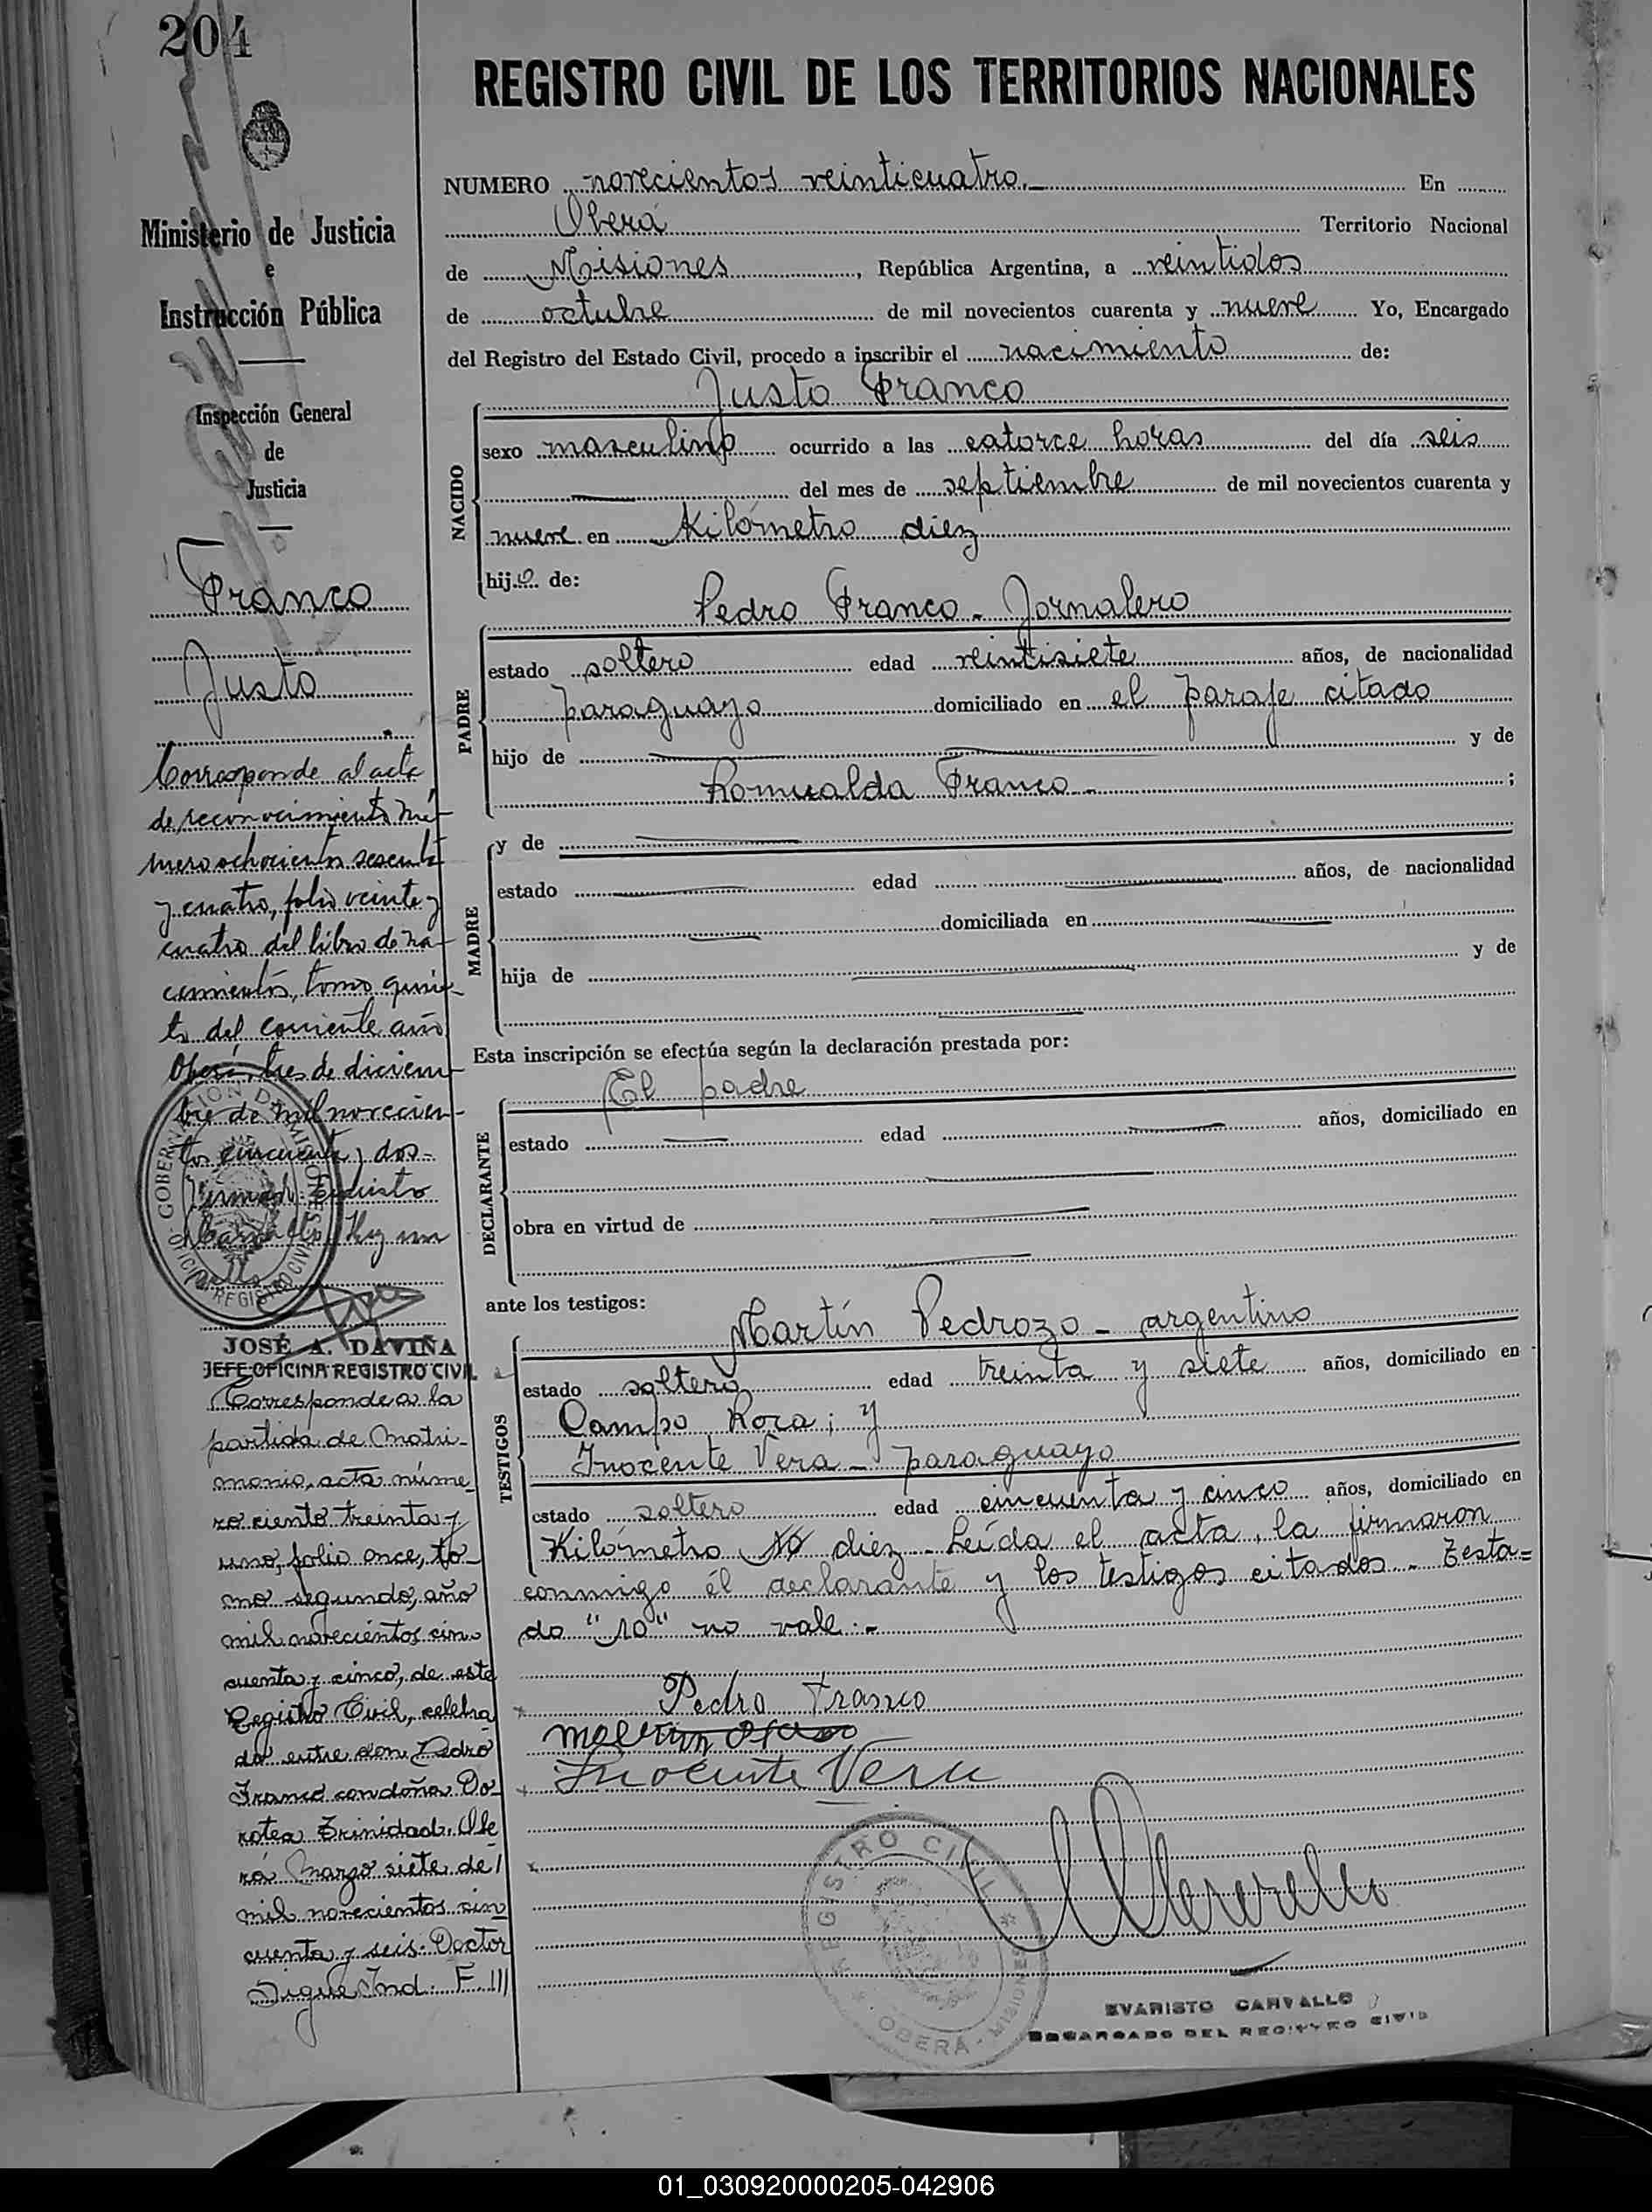 204
Ministerio de Justicia
e
Instrucción Pública
Inspección General
de
Justicia
Franco
Justo
Corresponde al acta
de reconocimiento nú-
mero ochocientos sesenta
y cuatro, folio veinte y
cuatro del libro de na-
cimientos, tomo quin-
to del corriente año
Oberá, tres de diciem-
bre de mil novecien-
tos cincuenta y dos-
Firmado: Evaristo
Carvallo. Hay un
sello
GOBERNACION DE MISIONES
OFICINA REGISTRO CIVIL
JOSÉ A. DAVIÑA
JEFE OFICINA REGISTRO CIVIL
Corresponde a la
partida de Matri-
monio, acta núme-
ro ciento treinta y
uno, folio once, to-
mo segundo, año
mil novecientos cin-
cuenta y cinco, de este
Registro Civil, celebra
do entre don Pedro
Franco con doña Do-
rotea Trinidad. Obe
rá Marzo siete de
mil novecientos cin
cuenta y seis. Doctor
Sigue Ind. F. III
REGISTRO CIVIL DE LOS TERRITORIOS NACIONALES
NUMERO novecientos veinticuatro.- En
Oberá Territorio Nacional
de Misiones, República Argentina, a veintidos
de octubre de mil novecientos cuarenta y nueve Yo, Encargado
del Registro del Estado Civil, procedo a inscribir el nacimiento de:
Justo Franco
NACIDO
sexo masculino ocurrido a las catorce horas del día seis
del mes de septiembre de mil novecientos cuarenta y
nueve en Kilómetro diez
hijo de:
Pedro Franco - Jornalero
PADRE
estado soltero edad veintisiete años, de nacionalidad
paraguayo domiciliado en el paraje citado
hijo de y de
Romualda Franco - ;
MADRE
y de
estado edad años, de nacionalidad
domiciliada en
hija de y de
Esta inscripción se efectúa según la declaración prestada por:
El padre
DECLARANTE
estado edad años, domiciliado en
obra en virtud de
ante los testigos:
Martín Pedrozo - argentino
TESTIGOS
estado soltero edad treinta y siete años, domiciliado en
Campo Roca; y
Inocente Vera - paraguayo
estado soltero edad cincuenta y cinco años, domiciliado en
Kilómetro 10 diez - Leída el acta, la firmaron
conmigo él declarante y los testigos citados - Testa=
do "10" no vale:-
Pedro Franco
Inocente Vera
REGISTRO CIVIL
OBERA - MISIONES
EVARISTO CARVALLO
ENCARGADO DEL REGISTRO CIVIL
01_030920000205-042906